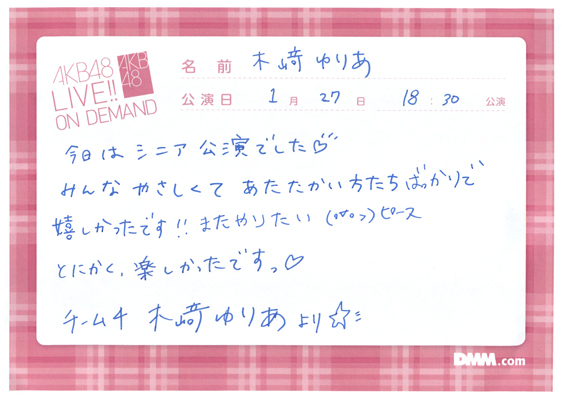 AKB48
LIVE!!
ON DEMAND
AKB
48
名前 木﨑ゆりあ
公演日 1月27日 18:30公演
今日はシニア公演でした♡
みんなやさしくてあたたかい方たちばっかりで
嬉しかったです!!またやりたい ピース
とにかく、楽しかったですっ♡
チーム4 木﨑ゆりあより☆
DMM.com